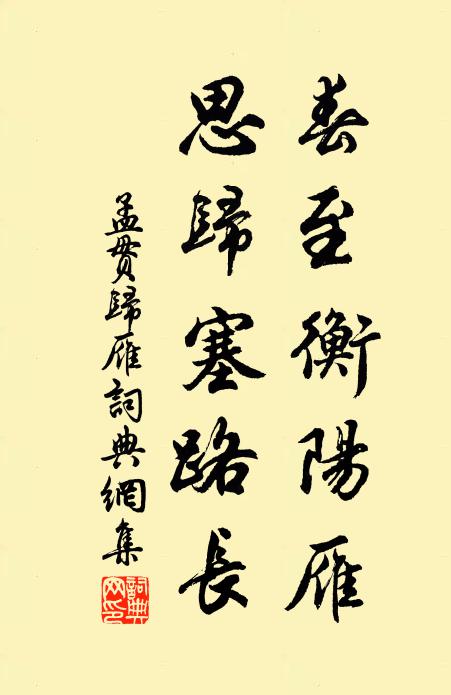 春至衡陽雁
思歸塞路長
孟貫歸雁詞典網集
詞典网印